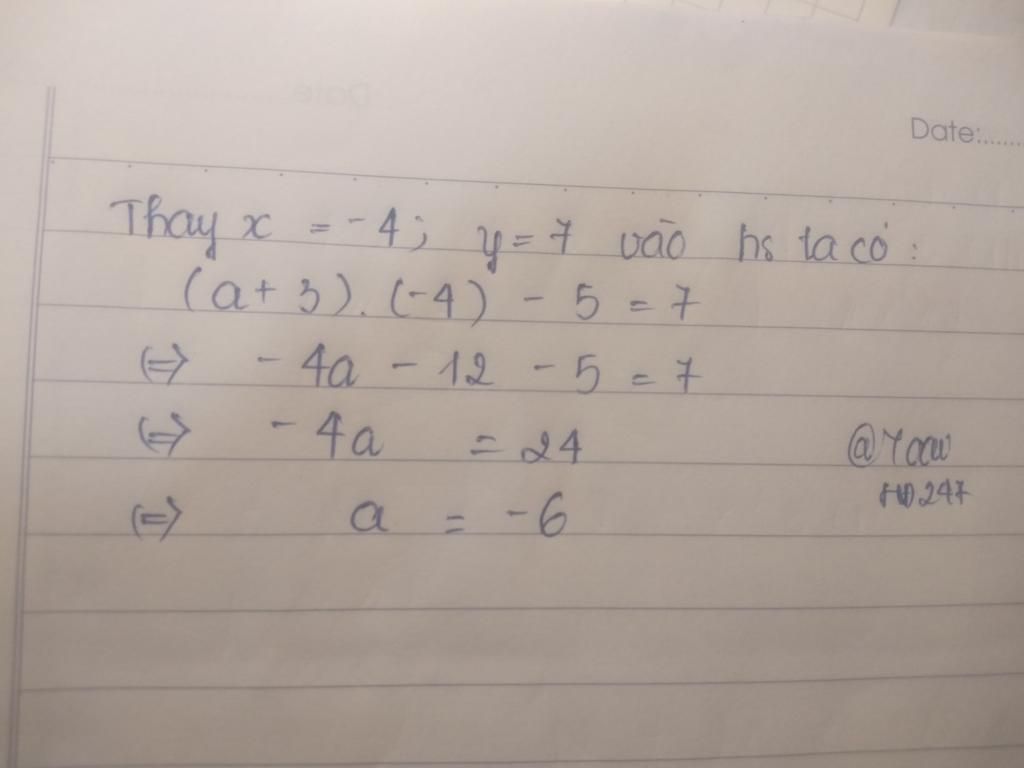 Date:.......
Thay x = -4; y = 7 vào hs ta có:
(a + 3). (-4) - 5 = 7
(=) - 4a - 12 - 5 = 7
(=) - 4a = 24
(=) a = -6
247